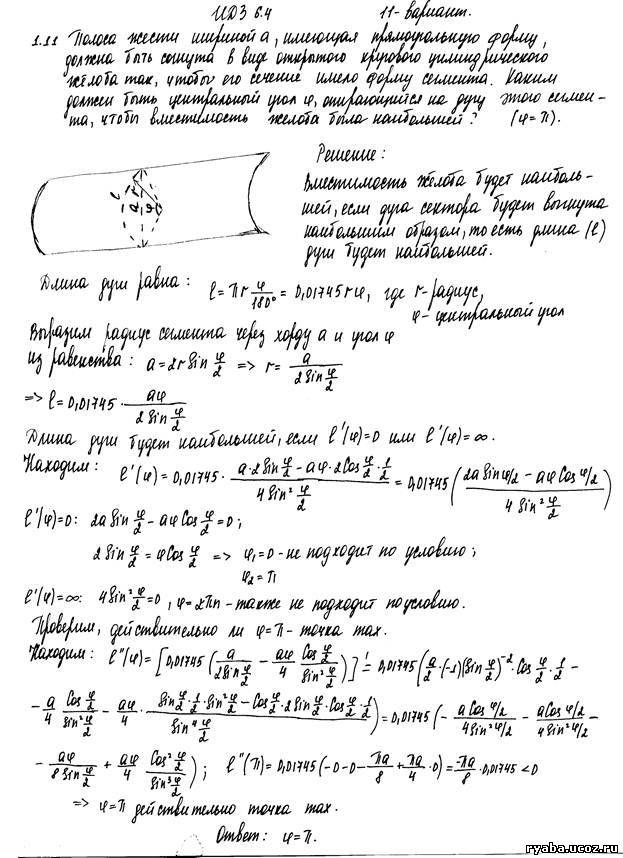 ИДЗ 6.4 11-вариант.
1.11 Полоса жести шириной a, имеющая прямоугольную форму,
должна быть согнута в виде открытого кругового цилиндрического
желоба так, чтобы его сечение имело форму сегмента. Каким
должен быть центральный угол φ, опирающийся на дугу этого сегмен-
та, чтобы вместимость желоба была наибольшей? (φ=π).
Решение:
Вместимость желоба будет наиболь-
шей, если дуга сектора будет выгнута
наибольшим образом, то есть длина (l)
дуги будет наибольшей.
l a r φ
Длина дуги равна: l=πr φ/180° = 0,01745rφ, где r-радиус,
φ-центральный угол
Выразим радиус сегмента через хорду a и угол φ
из равенства: a=2r Sin φ/2 => r= a/(2 Sin φ/2)
=> l=0,01745· aφ/(2 Sin φ/2)
Длина дуги будет наибольшей, если l'(φ)=0 или l'(φ)=∞.
Находим: l'(φ)=0,01745· (a·2Sin φ/2 - aφ·2Cos φ/2·1/2)/(4Sin² φ/2) = 0,01745((2a Sin φ/2 - aφ Cos φ/2)/(4 Sin² φ/2))
l'(φ)=0: 2a Sin φ/2 - aφ Cos φ/2 = 0;
2 Sin φ/2 = φ Cos φ/2 => φ₁=0 - не подходит по условию;
φ₂=π
l'(φ)=∞: 4Sin² φ/2=0, φ=2πn - также не подходит по условию.
Проверим, действительно ли φ=π - точка max.
Находим: l''(φ)=[0,01745(a/(2Sin φ/2) - aφ/4 Cos φ/2/Sin² φ/2)]' = 0,01745(a/2·(-1)(Sin φ/2)⁻²·Cos φ/2·1/2 -
- a/4 Cos φ/2/Sin² φ/2 - aφ/4 · (Sin φ/2·1/2·Sin² φ/2 - Cos φ/2·2Sin φ/2·Cos φ/2·1/2)/Sin⁴ φ/2) = 0,01745(- a Cos φ/2/4Sin² φ/2 - a Cos φ/2/4Sin² φ/2 -
- aφ/(8 Sin φ/2) + aφ/4 Cos² φ/2/Sin³ φ/2); l''(π)=0,01745(-0-0- πa/8 + πa/4·0)= -πa/8·0,01745<0
=> φ=π действительно точка max.
Ответ: φ=π.
ryaba.ucoz.ru